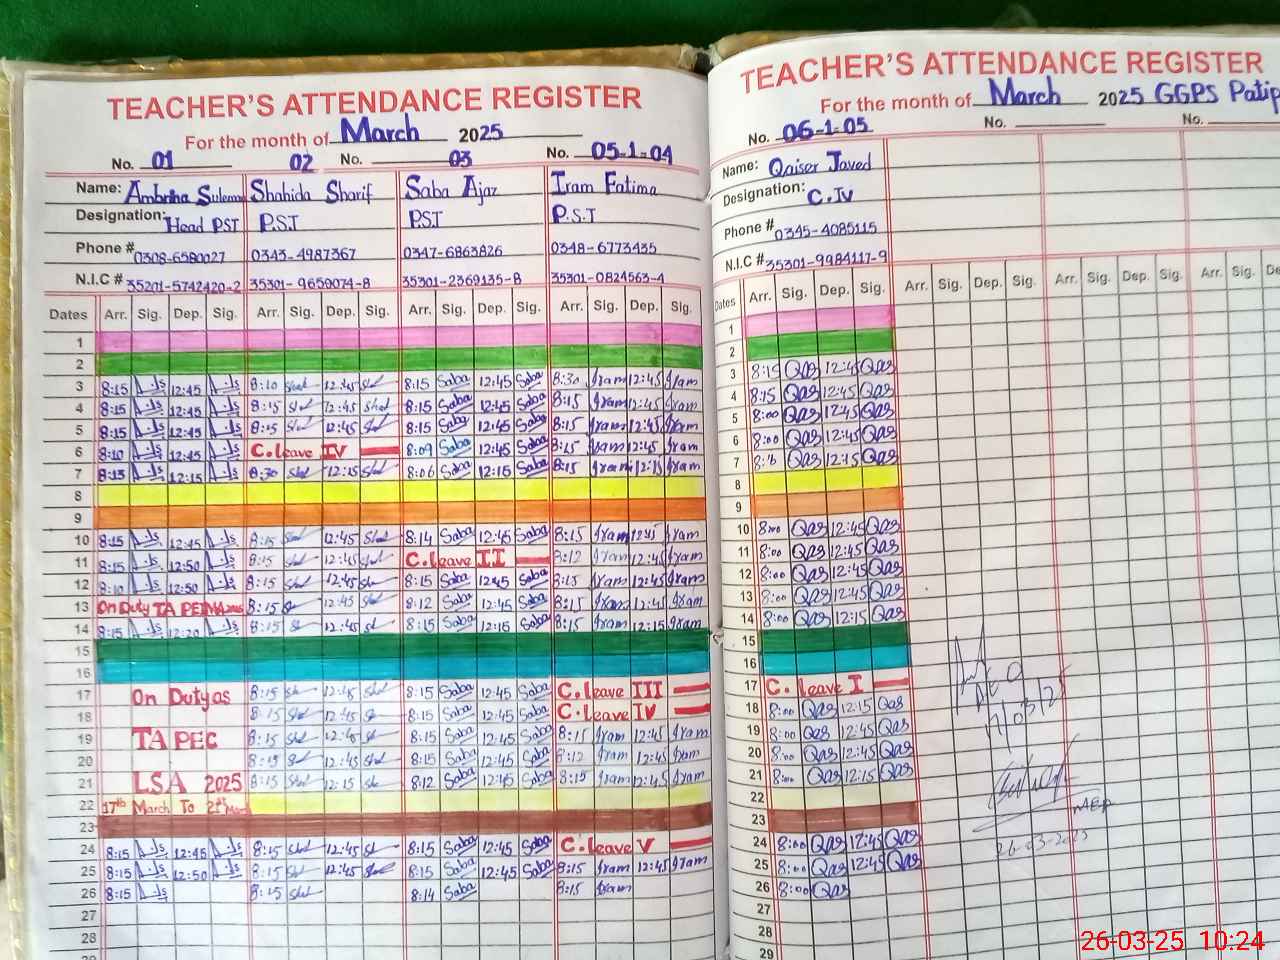 TEACHER'S ATTENDANCE REGISTER
For the month of March 2025
No. 01 02 No. 03 No. 05-1-04
Name: Ambrina Sulema Shahida Sharif Saba Ajaz Iram Fatima
Designation: Head PST P.S.T P.S.T P.S.T
Phone # 0308-6580027 0343-4987367 0347-6863826 0348-6773435
N.I.C # 35201-5742420-2 35301-9659074-8 35301-2369135-8 35301-0824563-4
Dates Arr. Sig. Dep. Sig. Arr. Sig. Dep. Sig. Arr. Sig. Dep. Sig. Arr. Sig. Dep. Sig.
1
2
3 8:15 12:45 8:10 12:45 8:15 Saba 12:45 Saba 8:30 Iram 12:45 Iram
4 8:15 12:45 8:15 12:45 8:15 Saba 12:45 Saba 8:15 Iram 12:45 Iram
5 8:15 12:45 8:15 12:45 8:15 Saba 12:45 Saba 8:15 Iram 12:45 Iram
6 8:10 12:45 C.leave IV 8:09 Saba 12:45 Saba 8:15 Iram 12:45 Iram
7 8:13 12:15 8:30 12:15 8:06 Saba 12:15 Saba 8:15 Iram 12:15 Iram
8
9
10 8:15 12:45 8:15 12:45 8:14 Saba 12:45 Saba 8:15 Iram 12:45 Iram
11 8:15 12:50 8:15 12:45 C.leave II 8:12 Iram 12:45 Iram
12 8:10 12:50 8:15 12:45 8:15 Saba 12:45 Saba 8:15 Iram 12:45 Iram
13 On Duty TA 8:15 12:45 8:12 Saba 12:45 Saba 8:15 Iram 12:45 Iram
14 8:15 12:20 8:15 12:45 8:15 Saba 12:15 Saba 8:15 Iram 12:15 Iram
15
16
17 On Duty as 8:15 12:45 8:15 Saba 12:45 Saba C.leave III
18 8:15 12:45 8:15 Saba 12:45 Saba C.leave IV
19 TA PEC 8:15 12:45 8:15 Saba 12:45 Saba 8:15 Iram 12:45 Iram
20 8:15 12:45 8:15 Saba 12:45 Saba 8:12 Iram 12:45 Iram
21 LSA 2025 8:15 12:15 8:12 Saba 12:45 Saba 8:15 Iram 12:45 Iram
22 17th March To 21st
23
24 8:15 12:45 8:15 12:45 8:15 Saba 12:45 Saba C.leave V
25 8:15 12:50 8:15 12:45 8:15 Saba 12:45 Saba 8:15 Iram 12:45 Iram
26 8:15 8:15 8:14 Saba 8:15 Iram
27
28
29
TEACHER'S ATTENDANCE REGISTER
For the month of March 2025 GGPS Patip
No. 06-1-05 No. No.
Name: Qaiser Javed
Designation: C.IV
Phone # 0345-4085115
N.I.C # 35301-9984117-9
Dates Arr. Sig. Dep. Sig. Arr. Sig. Dep. Sig. Arr. Sig. Dep. Sig. Arr. Sig.
1
2
3 8:15 Qas 12:45 Qas
4 8:15 Qas 12:45 Qas
5 8:00 Qas 12:45 Qas
6 8:00 Qas 12:45 Qas
7 Qas 12:15 Qas
8
9
10 8:00 Qas 12:45 Qas
11 8:00 Qas 12:45 Qas
12 8:00 Qas 12:45 Qas
13 8:00 Qas 12:45 Qas
14 8:00 Qas 12:45 Qas
15
16
17 C. leave I
18 8:00 Qas 12:15 Qas
19 8:00 Qas 12:45 Qas
20 8:00 Qas 12:45 Qas
21 8:00 Qas 12:15 Qas
22
23
24 8:00 Qas 12:45 Qas
25 8:00 Qas 12:45 Qas
26 8:00 Qas
27
28
29
26-03-2025
26-03-25 10:24